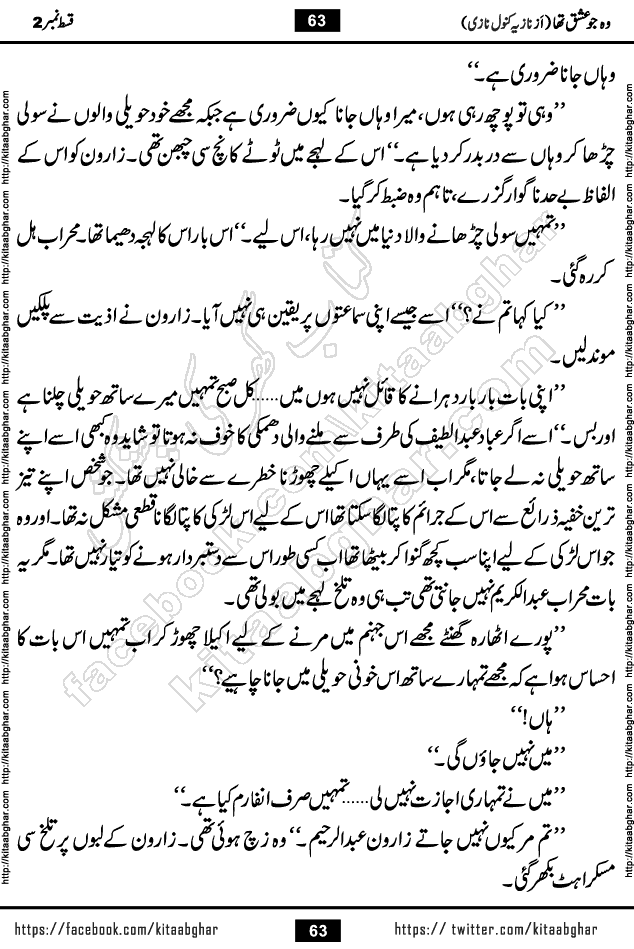 وہ جو عشق تھا (از نازیہ کنول نازی)
63
قسط نمبر 2
وہاں جانا ضروری ہے۔‘‘
’’وہی تو پوچھ رہی ہوں، میرا وہاں جانا کیوں ضروری ہے جبکہ مجھے خود حویلی والوں نے سولی
چڑھا کر وہاں سے دربدر کر دیا ہے۔‘‘ اس کے لہجے میں ٹوٹے کانچ سی چبھن تھی۔ زارون کو اس کے
الفاظ بے حد ناگوار گزرے، تاہم وہ ضبط کر گیا۔
’’تمہیں سولی چڑھانے والا دنیا میں نہیں رہا، اس لیے۔‘‘ اس بار اس کا لہجہ دھیما تھا۔ محراب ہل
کر رہ گئی۔
’’کیا کہا تم نے؟‘‘ اسے جیسے اپنی سماعتوں پر یقین ہی نہیں آیا۔ زارون نے اذیت سے پلکیں
موند لیں۔
’’اپنی بات بار بار دہرانے کا قائل نہیں ہوں میں……کل صبح تمہیں میرے ساتھ حویلی چلنا ہے
اور بس۔‘‘ اسے اگر عباد عبداللطیف کی طرف سے ملنے والی دھمکی کا خوف نہ ہوتا تو شاید وہ کبھی اسے اپنے
ساتھ حویلی نہ لے جاتا، مگر اب اسے یہاں اکیلے چھوڑنا خطرے سے خالی نہیں تھا۔ جو شخص اپنے تیز
ترین خفیہ ذرائع سے اس کے جرائم کا پتا لگا سکتا تھا اس کے لیے اس لڑکی کا پتا لگانا قطعی مشکل نہ تھا۔ اور وہ
جو اس لڑکی کے لیے اپنا سب کچھ گنوا کر بیٹھا تھا اب کسی طور اس سے دستبردار ہونے کو تیار نہیں تھا۔ مگر یہ
بات محراب عبدالکریم نہیں جانتی تھی تب ہی وہ تلخ لہجے میں بولی تھی۔
’’پورے اٹھارہ گھنٹے مجھے اس جہنم میں مرنے کے لیے اکیلا چھوڑ کر اب تمہیں اس بات کا
احساس ہوا ہے کہ مجھے تمہارے ساتھ اس خونی حویلی میں جانا چاہیے؟‘‘
’’ہاں!‘‘
’’میں نہیں جاؤں گی۔‘‘
’’میں نے تمہاری اجازت نہیں لی……تمہیں صرف انفارم کیا ہے۔‘‘
’’تم مر کیوں نہیں جاتے زارون عبدالرحیم۔‘‘ وہ زچ ہوئی تھی۔ زارون کے لبوں پر تلخ سی
مسکراہٹ بکھر گئی۔
https://facebook.com/kitaabghar
63
https:// twitter.com/kitaabghar
http://kitaabghar.com http://kitaabghar.com http://kitaabghar.com http://kitaabghar.com http://kitaabghar.com http://kitaabghar.com http://kitaabghar.com http://kitaabghar.com
http://kitaabghar.com http://kitaabghar.com http://kitaabghar.com http://kitaabghar.com http://kitaabghar.com http://kitaabghar.com http://kitaabghar.com http://kitaabghar.com
کتاب گھر کی پیشکش
facebook.com/kitaabghar
kitaabghar.com